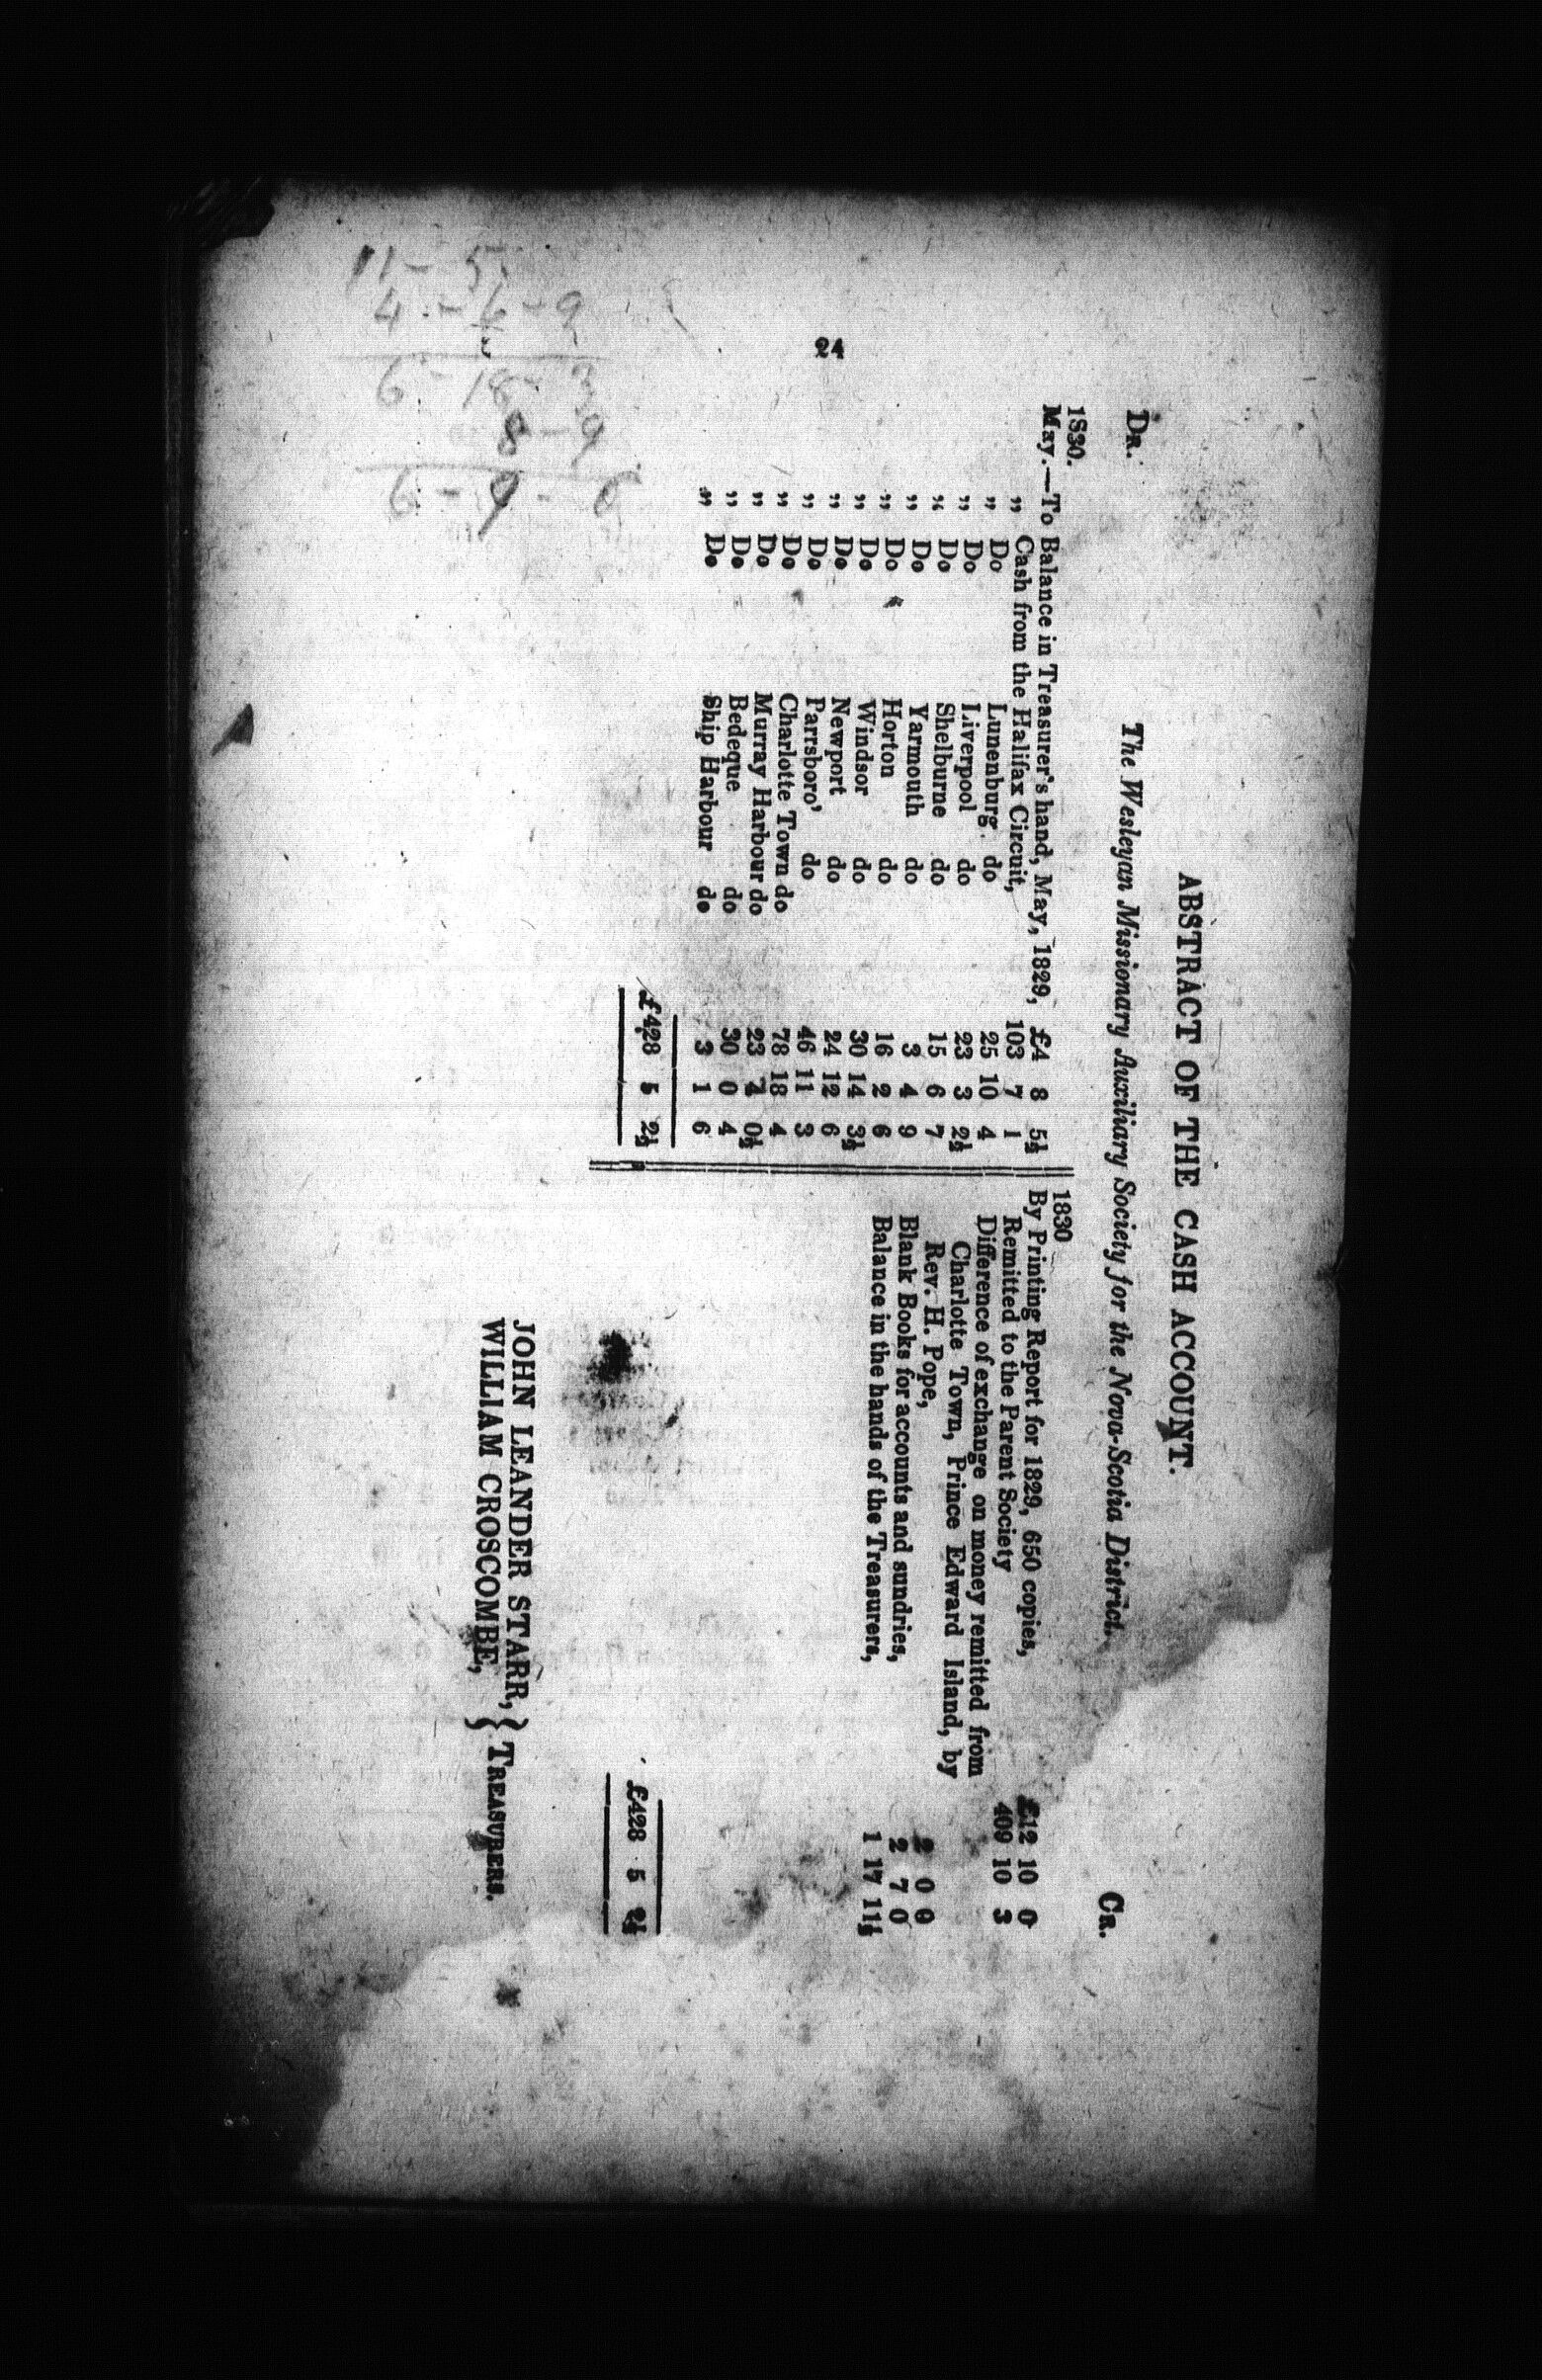 24
ABSTRACT OF THE CASH ACCOUNT.
The Wesleyan Missionary Auxiliary Society for the Nova-Scotia District.
DR.
CR.
1830.
May.—To Balance in Treasurer's hand, May, 1829, £4 8 5½
„ Cash from the Halifax Circuit, 103 7 1
„ Do Lunenburg do 25 10 4
„ Do Liverpool do 23 3 2½
„ Do Shelburne do 15 6 7
„ Do Yarmouth do 3 4 9
„ Do Horton do 16 2 6
„ Do Windsor do 30 14 3½
„ Do Newport do 24 12 6
„ Do Parrsboro' do 46 11 3
„ Do Charlotte Town do 78 18 4
„ Do Murray Harbour do 23 4 0½
„ Do Bedeque do 30 0 4
„ Do Ship Harbour do 3 1 6
£428 5 2½
1830
By Printing Report for 1829, 650 copies, £12 10 0
Remitted to the Parent Society 409 10 3
Difference of exchange on money remitted from
Charlotte Town, Prince Edward Island, by
Rev. H. Pope, 2 0 0
Blank Books for accounts and sundries, 2 7 0
Balance in the hands of the Treasurers, 1 17 11½
£428 5 2½
JOHN LEANDER STARR, }
WILLIAM CROSCOMBE, } TREASURERS.
11 - 5
4 - 6 - 9
6 - 18 - 3
8 - 9
6 - 9 - 6